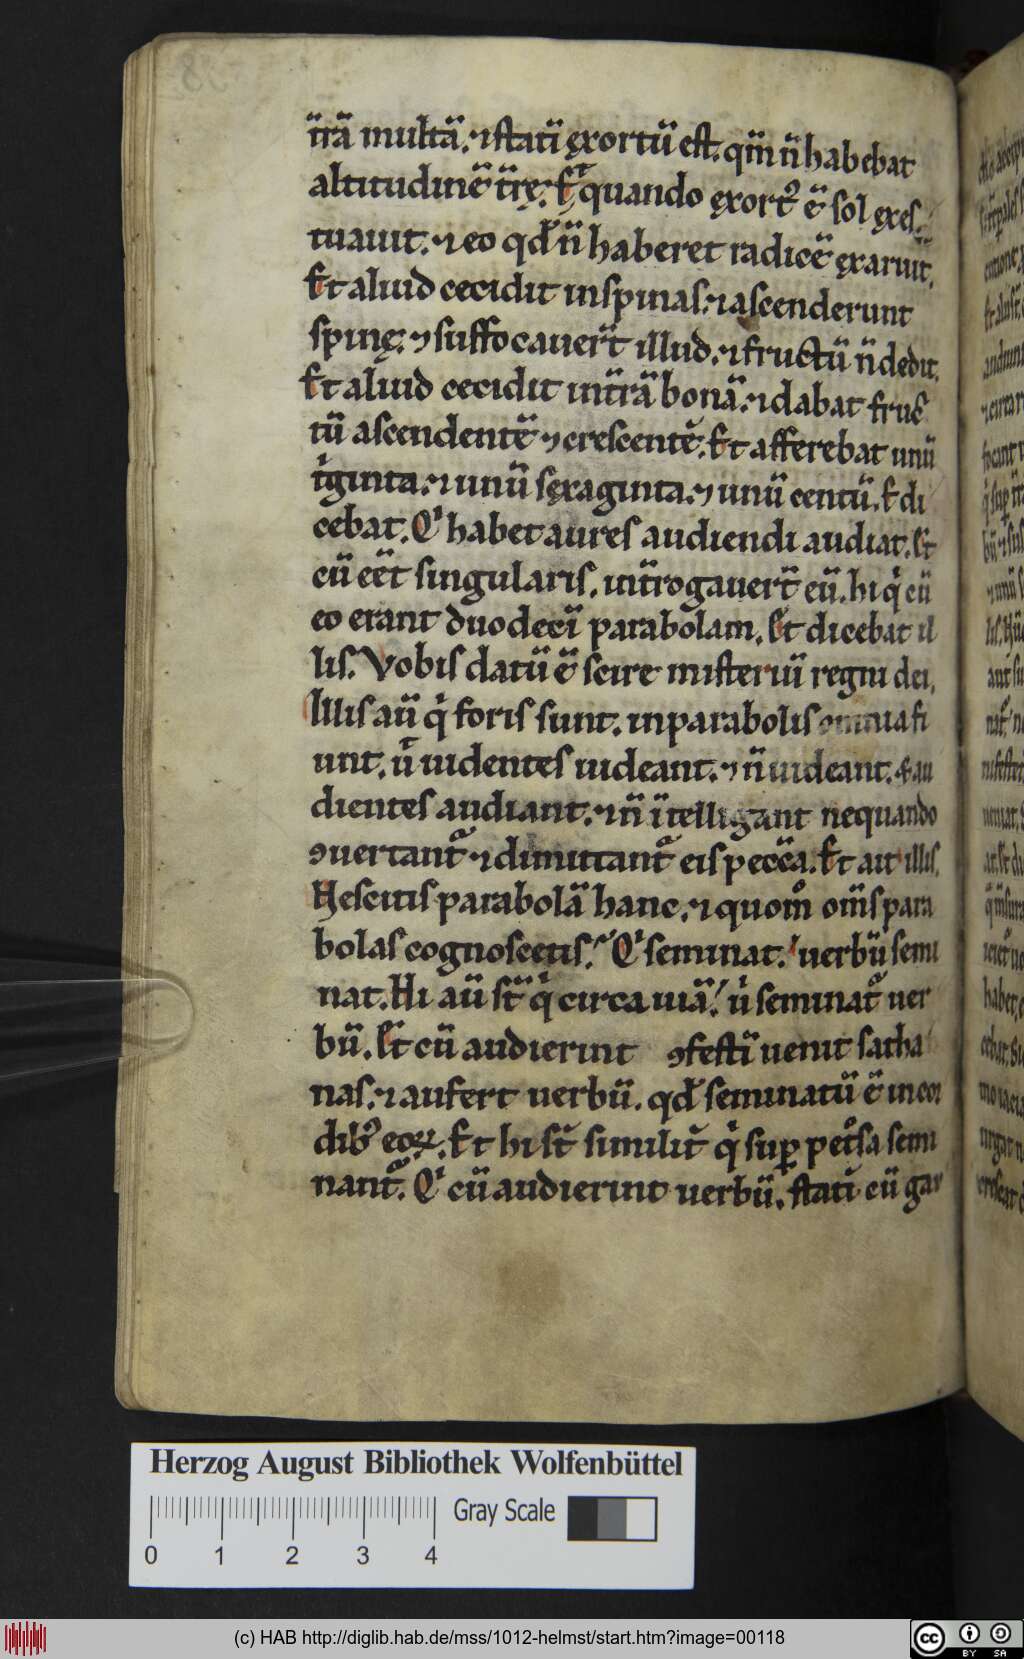 t̄rā multā. ⁊ statī ęxortū est. qm̄ n̄ habebat
altitudinē t̄rę. Et quando ęxortꝰ ē sol ęxes
tuauit. ⁊ eo qđ n̄ haberet radicē ęxaruit.
Et aliud cecidit in spinas. ⁊ ascenderunt
spinę. ⁊ suffocauer̄t illud. ⁊ fructū n̄ dedit.
Et aliud cecidit in t̄rā bonā. ⁊ dabat fruc
tū ascendentē ⁊ crescentē. Et afferebat unū
tͥginta. ⁊ unū sęxaginta. ⁊ unū centū. Et di
cebat. Qͥ habet aures audiendi audiat. Et
cū eēt singularis. int̄rogauer̄t eū. hi qͥ cū
eo erant duodecī parabolam. Et dicebat il
lis. Vobis datū ē scire misteriū regni dei.
Illis aū qͥ foris sunt. in parabolis omnia fi
unt. uͭ uidentes uideant. ⁊ n̄ uideant. Et au
dientes audiant. ⁊ n̄ ītelligant nequando
ꝯuertantᷣ ⁊ dimittantᷣ eis peccā. Et ait illis.
Nescitis parabolā hanc. ⁊ quom̊ om̄s para
bolas cognoscetis. Qͥ seminat. uerbū semi
nat. Hi aū st̄ qͥ circa uiā. uͥ seminatᷣ uer
bū. Et cū audierint ꝯfestī uenit satha
nas. ⁊ aufert uerbū. qđ seminatū ē in cor
dibꝰ eoꝝ. Et hi st̄ similit̄ qͥ suꝑ pet̊sa semi
nantᷣ. Qͥ cū audierint uerbū. statī cū gau
Herzog August Bibliothek Wolfenbüttel
Gray Scale
0 1 2 3 4
(c) HAB http://diglib.hab.de/mss/1012-helmst/start.htm?image=00118
cc BY SA